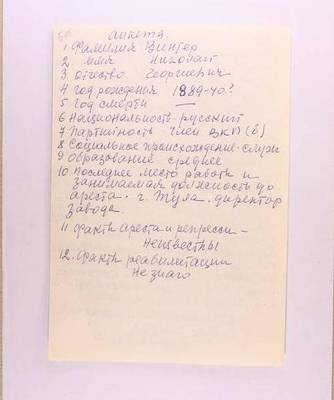 Анкета.
1. Фамилия Винтер
2. имя Николай
3 отчество Георгиевич
4 год рождения 1889-90?
5 год смерти —
6 Национальность русский
7 Партийность член ВКП(б)
8 Социальное происхождение-служ
9 Образование среднее
10 Последнее место работы и
занимаемая должность до
ареста. г. Тула. директор
завода.
11 Факты ареста и репрессии -
Неизвестны
12. Факты реабилитации
не знаю